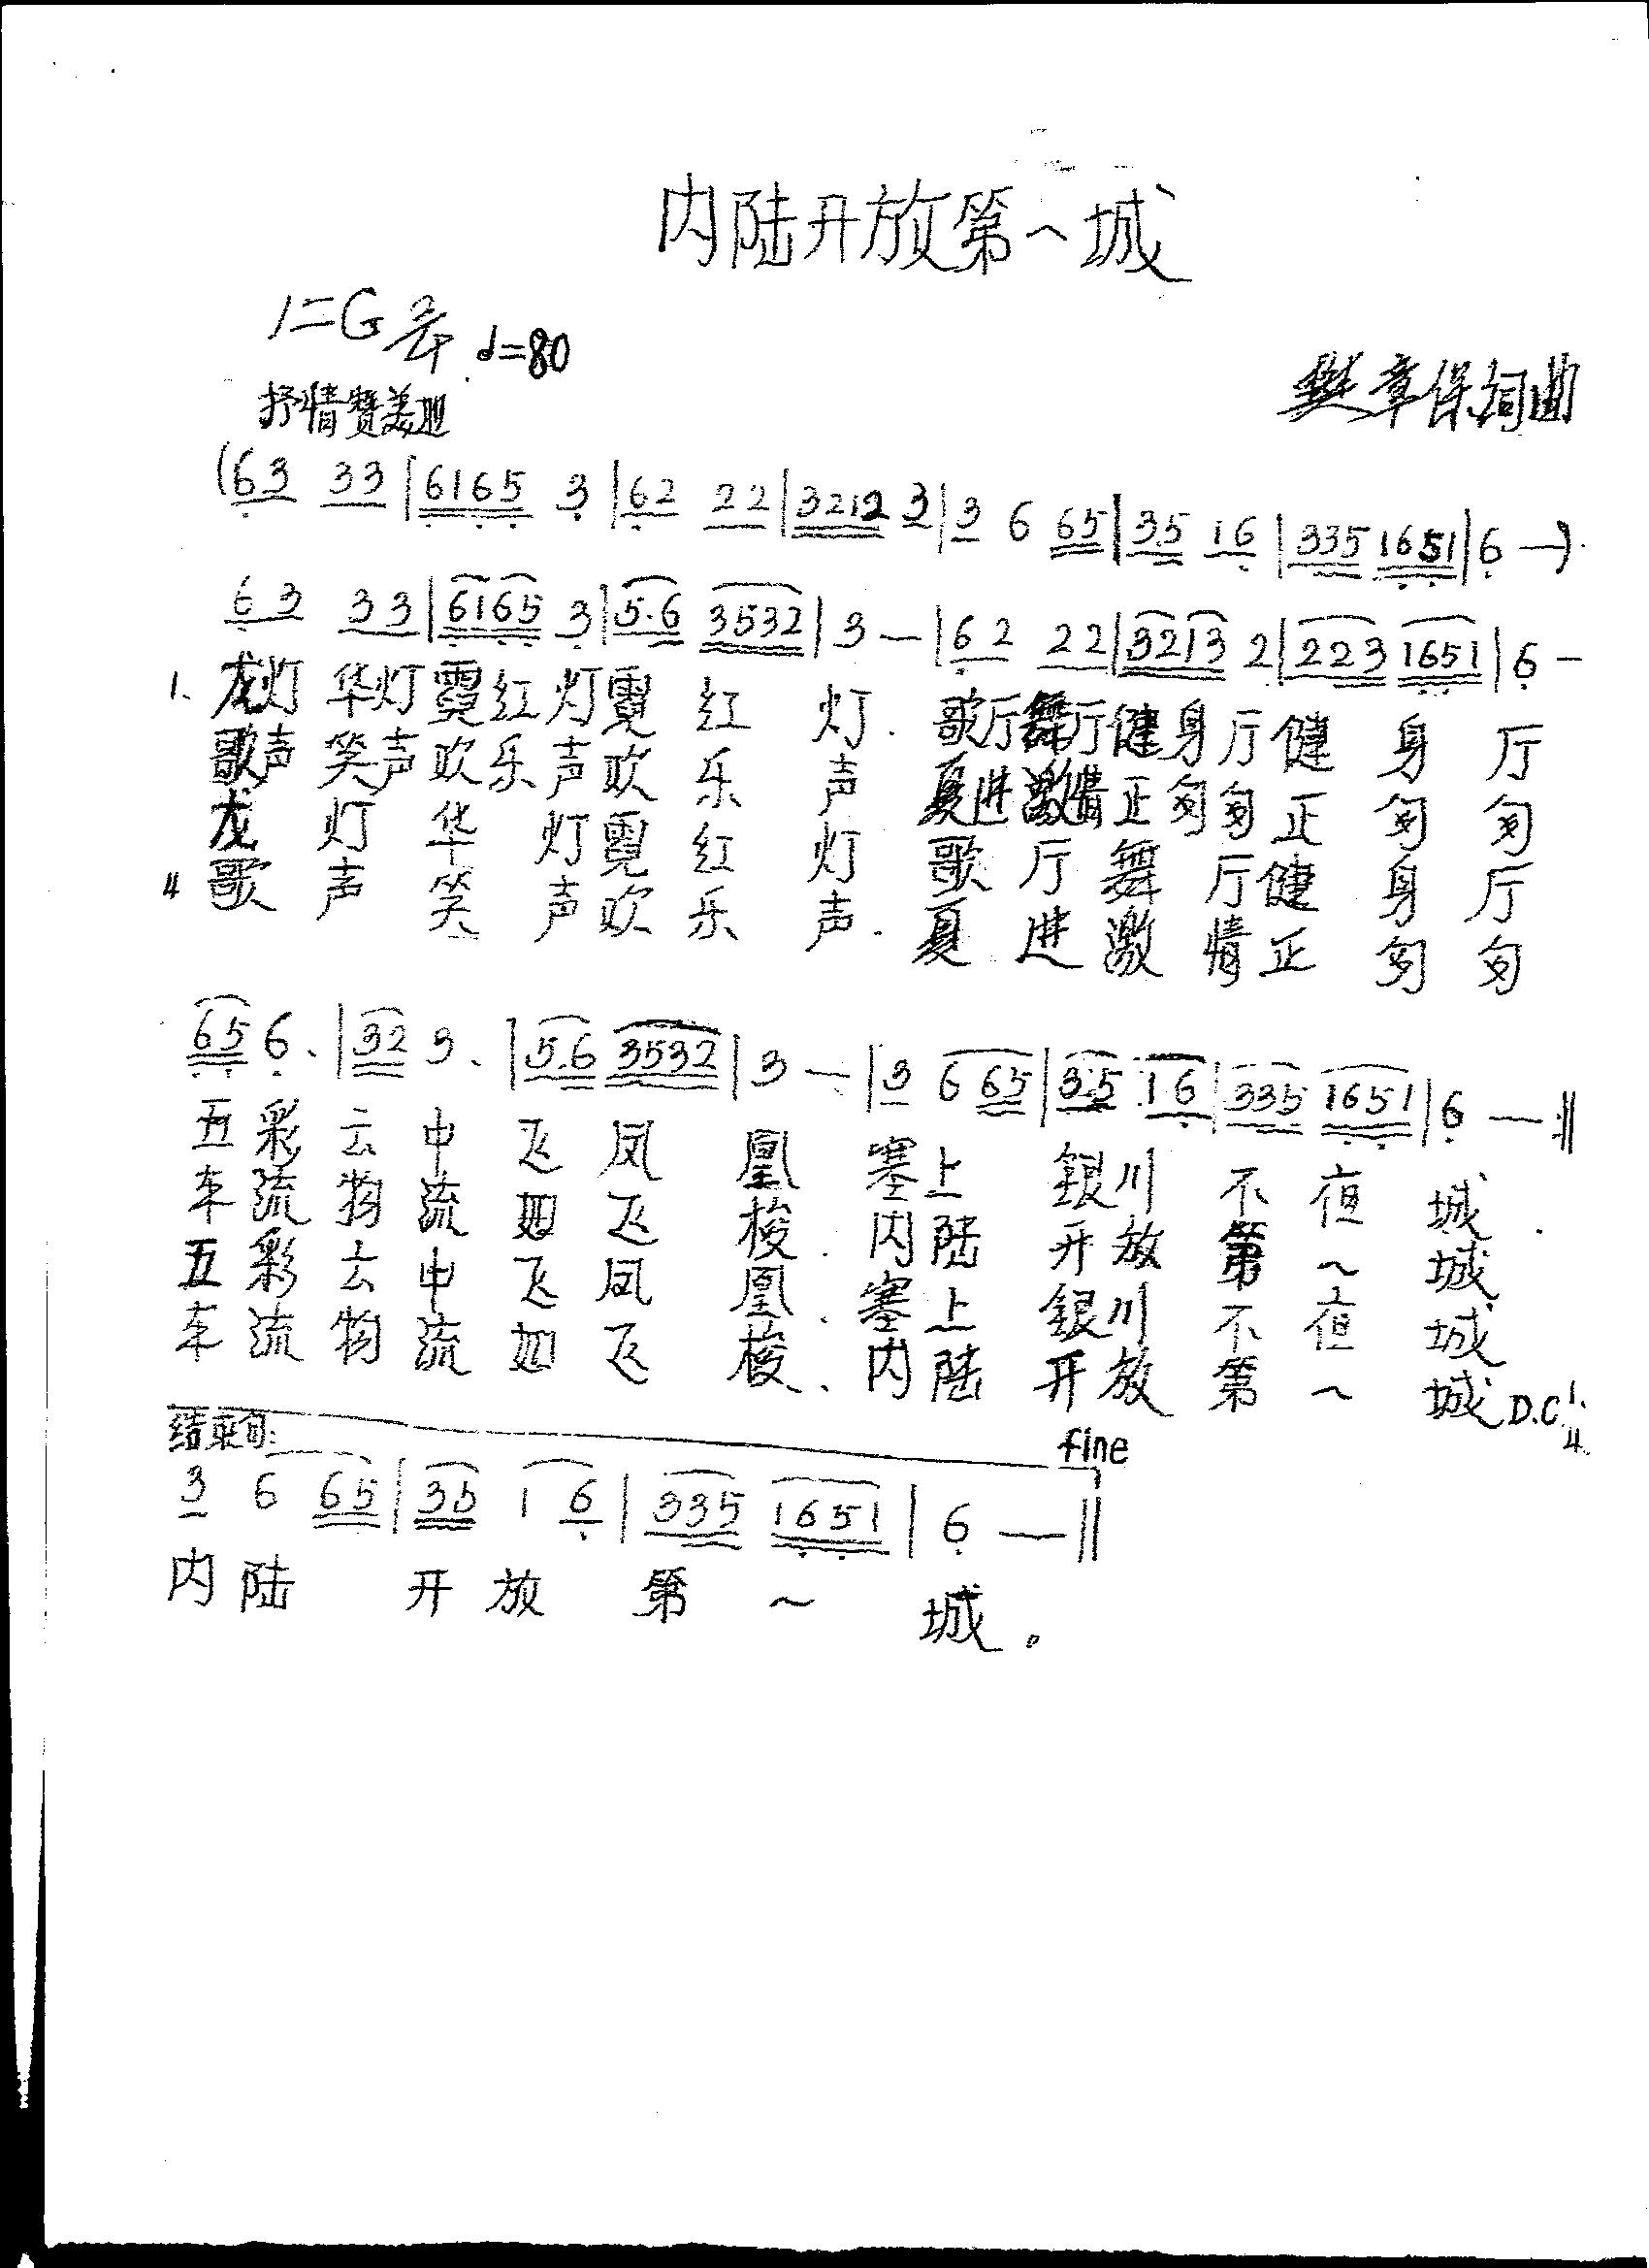 内陆开放第一城
1=G 2/4 ♩=80
抒情赞美地
樊章保词曲
(63 33|6165 3|62 22|3212 3|3 6 65|35 16|335 1651|6 —)
63 33|6165 3|5.6 3532|3 —|62 22|3213 2|223 1651|6 —
1. 龙灯华灯霓红灯霓红灯.歌厅舞厅健身厅健身厅
歌声笑声欢乐声欢乐声 夏进激情正匆匆正匆匆
龙灯华灯霓红灯 歌厅舞厅健身厅
4 歌声笑声欢乐声.夏进激情正匆匆
65 6.|32 3.|5.6 3532|3 —|3 6 65|3.5 16|335 1651|6 —:‖
五彩云中飞凤凰 塞上银川不夜城
车流物流如飞梭.内陆开放第一城
五彩云中飞凤凰.塞上银川不夜城
车流物流如飞梭.内陆开放第一城 D.C 1.4.
结束句: fine
3 6 65|35 1 6|335 1651|6 —‖
内陆开放第一城。